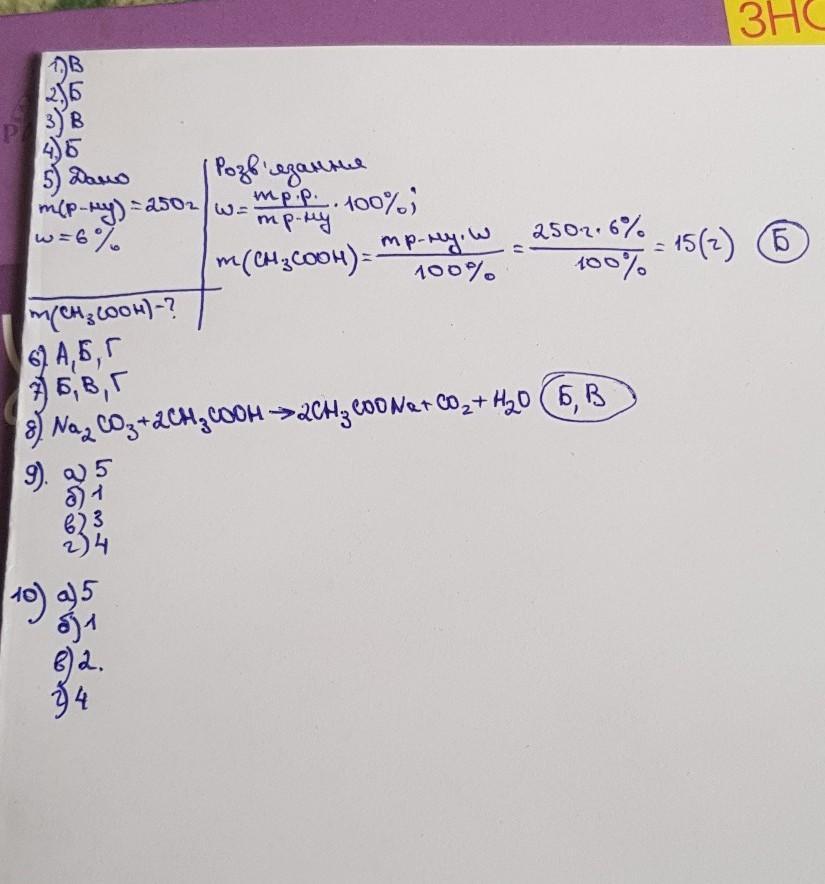 ЗНО
1) В
2) Б
3) В
4) Б
5) Дано
m(р-ну) = 250г
w = 6%
m(CH₃COOH) - ?
Розв'язання
w = mр.р. / mр-ну · 100%;
m(CH₃COOH) = mр-ну · w / 100% = 250г · 6% / 100% = 15(г) Б
6) А, Б, Г
7) Б, В, Г
8) Na₂CO₃ + 2CH₃COOH → 2CH₃COONa + CO₂ + H₂O Б, В
9). а) 5
б) 1
в) 3
г) 4
10) а) 5
б) 1
в) 2.
г) 4